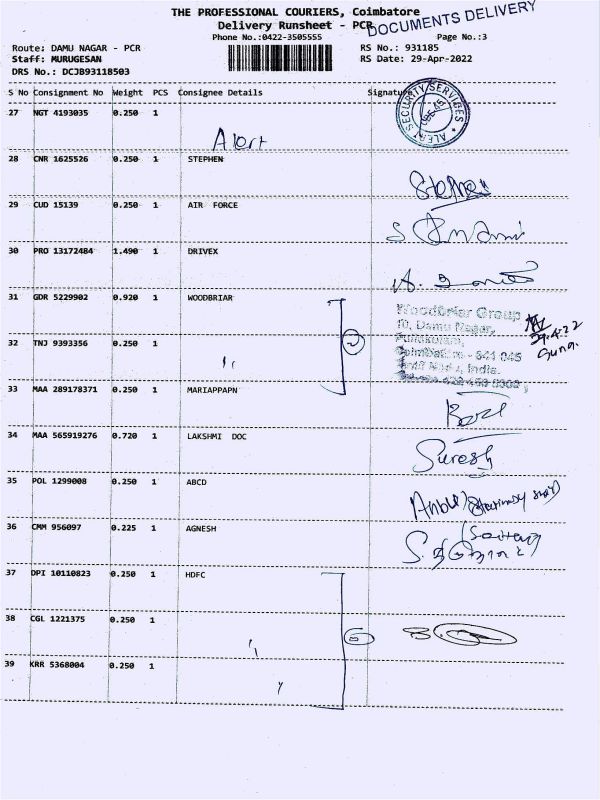 THE PROFESSIONAL COURIERS, Coimbatore
Delivery Runsheet - PCR
DOCUMENTS DELIVERY
Phone No.:0422-3505555
Page No.:3
Route: DAMU NAGAR - PCR
RS No.: 931185
Staff: MURUGESAN
RS Date: 29-Apr-2022
DRS No.: DCJB93118503
S No Consignment No Weight PCS Consignee Details Signature
27 NGT 4193035 0.250 1
Alert
ALERT SECURITY SERVICES
28 CNR 1625526 0.250 1 STEPHEN
Stephen
29 CUD 15139 0.250 1 AIR FORCE
30 PRO 13172484 1.490 1 DRIVEX
31 GDR 5229902 0.920 1 WOODBRIAR
Woodbriar Group
10, Damu Nagar,
Puliakulam,
Coimbatore - 641 045
Tamil Nadu, India.
29.4.22
32 TNJ 9393356 0.250 1
2
33 MAA 289178371 0.250 1 MARIAPPAPN
34 MAA 565919276 0.720 1 LAKSHMI DOC
Suresh
35 POL 1299008 0.250 1 ABCD
36 CMM 956097 0.225 1 AGNESH
37 DPI 10110823 0.250 1 HDFC
38 CGL 1221375 0.250 1
39 KRR 5368004 0.250 1